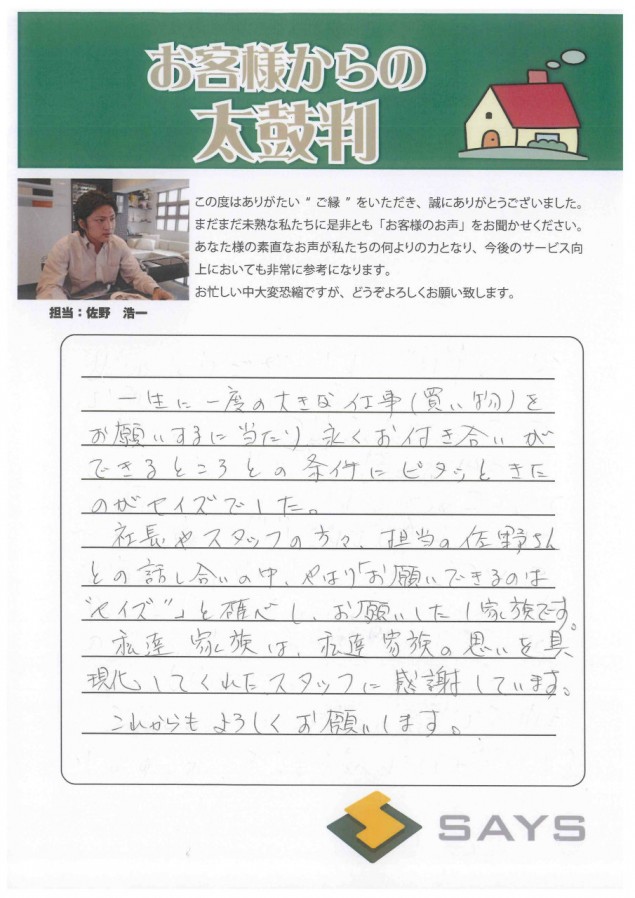 お客様からの
太鼓判
この度はありがたい“ご縁”をいただき、誠にありがとうございました。
まだまだ未熟な私たちに是非とも「お客様のお声」をお聞かせください。
あなた様の素直なお声が私たちの何よりの力となり、今後のサービス向
上においても非常に参考になります。
お忙しい中大変恐縮ですが、どうぞよろしくお願い致します。
担当：佐野 浩一
一生に一度の大きな仕事(買い物)を
お願いするに当たり、永くお付き合いが
できるところとの条件にピタッときた
のがセイズでした。
社長やスタッフの方々、担当の佐野さん
との話し合いの中、やはり「お願いできるのは
“セイズ”」と確信し、お願いした1家族です。
私達家族は、私達家族の思いを具
現化してくれたスタッフに感謝しています。
これからもよろしくお願いします。
SAYS